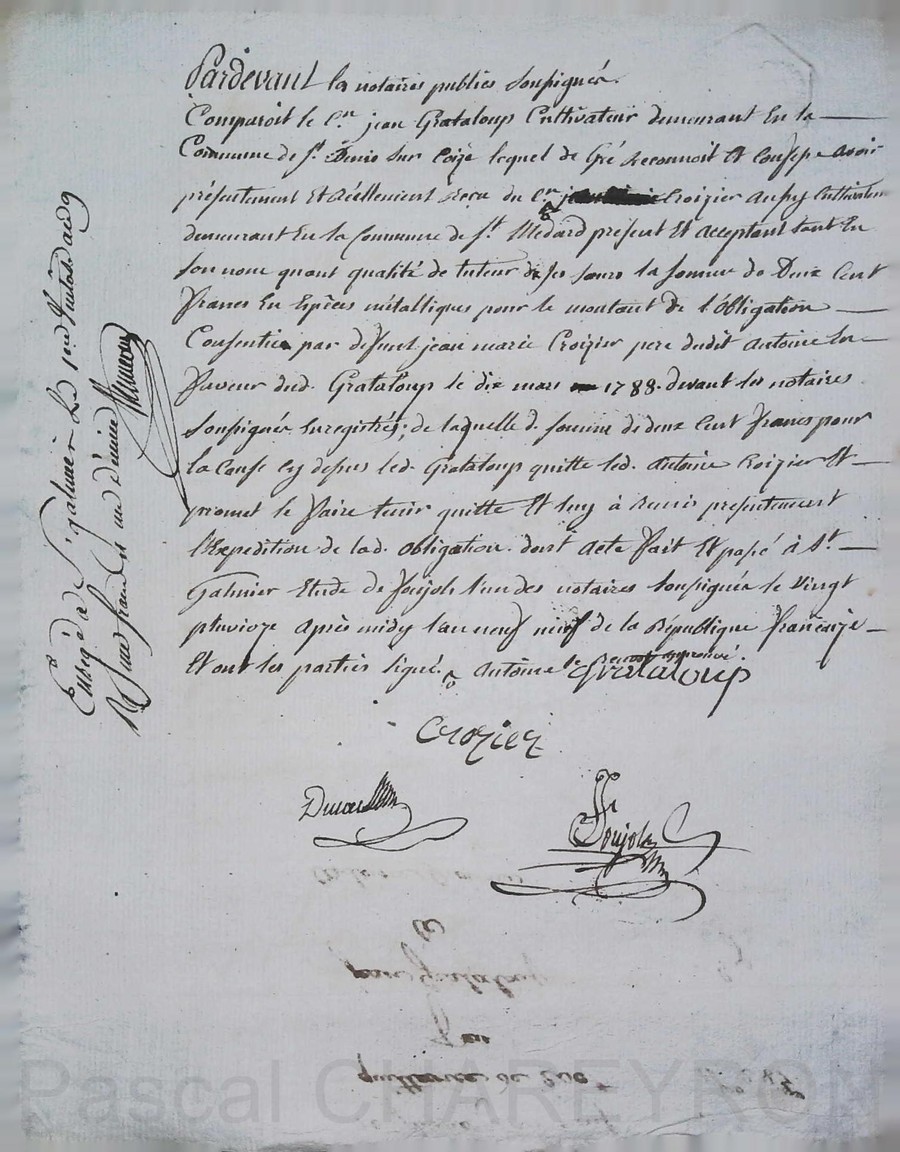 Pardevant les notaires publics soussignés.
Comparoit le C.en jean Grataloup Cultivateur demeurant En la
Commune de S.t Denis sur Coize lequel de Gré Reconnoit Et Confesse avoir
présentement Et Réellement Reçu du C.en Croizier aussy Cultivateur
demeurant En la Commune de S.t Medard présent Et acceptant tant En
son nom quant qualité de tuteur de ses sœurs la somme de Deux Cent
francs En Espèces métalliques pour le montant de l'Obligation
Consentie par defunt jean marie Croizier pere dudit Antoine En
faveur dud. Grataloup le dix mars 1788. devant les notaires
soussignés Enregistrée; de laquelle d. somme de deux Cent francs pour
la Cause Cy dessus led. Grataloup quitte led. Antoine Croizier Et
promet le faire tenir quitte Et luy à Remis présentement
l'Expedition de lad. Obligation. dont Acte fait Et passé à S.t
Galmier Etude de Soujol l'un des notaires soussignés le Vingt
pluvioze après midy l'an neuf de la République françaize
Et ont les parties signé. Antoine
Grataloup
Crozier
Soujol
Enreg.é à S.t galmier Le
Reçu un franc
jean Grataloup
quittance de 200
Pascal CHAREYRON